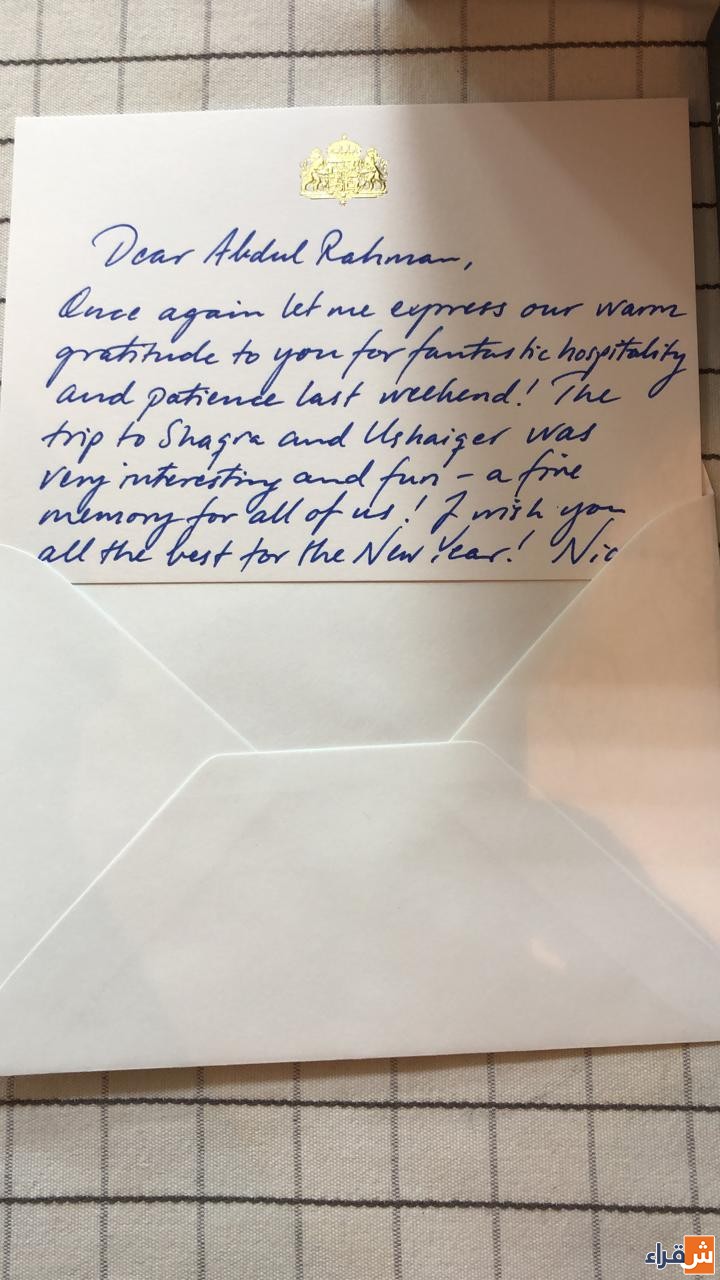 Dear Abdul Rahman,
Once again let me express our warm
gratitude to you for fantastic hospitality
and patience last weekend! The
trip to Shaqra and Ushaiger was
very interesting and fun – a fine
memory for all of us! I wish you
all the best for the New Year! Nic
شقراء